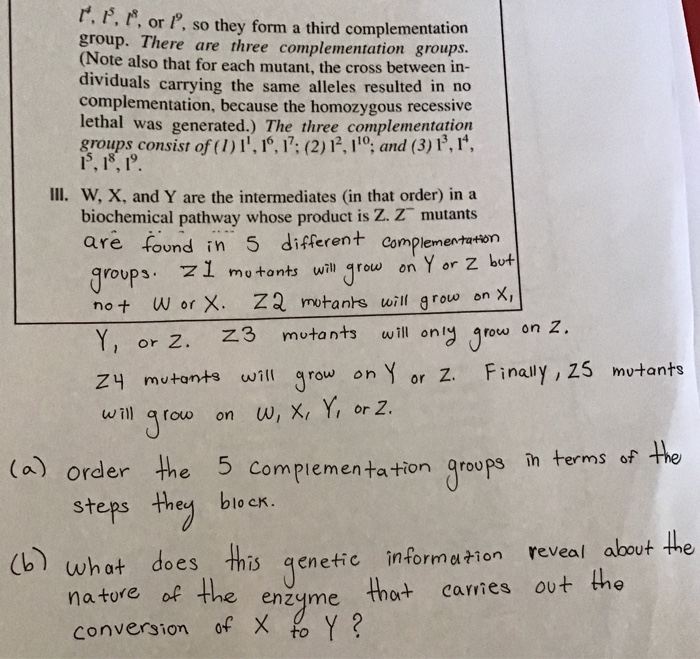 l⁴, l⁵, l⁸, or l⁹, so they form a third complementation
group. There are three complementation groups.
(Note also that for each mutant, the cross between in-
dividuals carrying the same alleles resulted in no
complementation, because the homozygous recessive
lethal was generated.) The three complementation
groups consist of (1) l¹, l⁶, l⁷; (2) l², l¹⁰; and (3) l³, l⁴,
l⁵, l⁸, l⁹.
III. W, X, and Y are the intermediates (in that order) in a
biochemical pathway whose product is Z. Z⁻ mutants
are found in 5 different complementation
groups. Z1 mutants will grow on Y or Z but
not W or X. Z2 mutants will grow on X,
Y, or Z. Z3 mutants will only grow on Z.
Z4 mutants will grow on Y or Z. Finally, Z5 mutants
will grow on W, X, Y, or Z.
(a) order the 5 complementation groups in terms of the
steps they block.
(b) what does this genetic information reveal about the
nature of the enzyme that carries out the
conversion of X to Y?